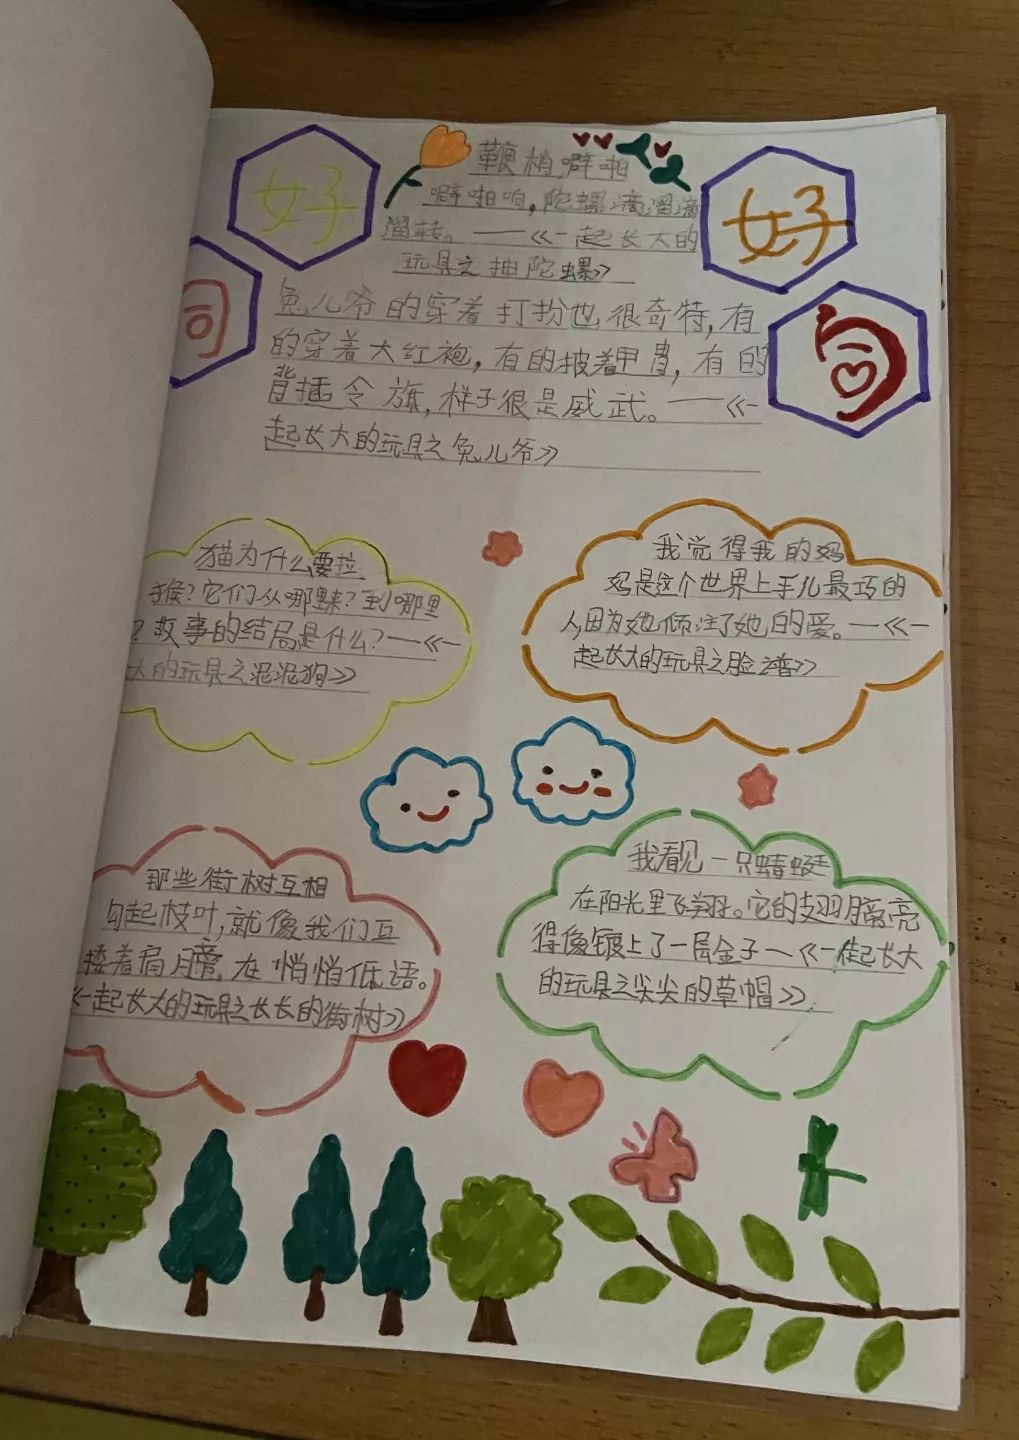 好
词
好
句
鞭梢噼啪
噼啪响，陀螺滴溜滴
溜转。——《一起长大的
玩具之抽陀螺》
兔儿爷的穿着打扮也很奇特，有
的穿着大红袍，有的披着甲胄，有的
背插令旗，样子很是威武。——《一
起长大的玩具之兔儿爷》
猫为什么要拉
猴？它们从哪里来？到哪里
？故事的结局是什么？——《一
大的玩具之泥泥狗》
我觉得我的妈
妈是这个世界上手儿最巧的
人，因为她倾注了她的爱。——《一
起长大的玩具之脸谱》
那些街树互相
勾起枝叶，就像我们互
搂着肩膀，在悄悄低语。
《一起长大的玩具之长长的街树》
我看见一只蜻蜓
在阳光里飞翔。它的翅膀亮
得像镀上了一层金子—《一起长大
的玩具之尖尖的草帽》